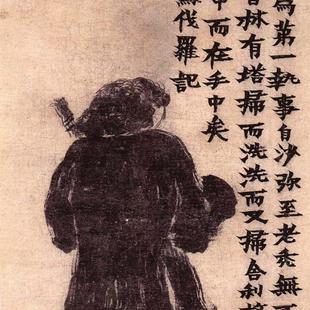 為第一執事自沙弥至老禿無
林有塔掃而洗洗而又掃舍利
中而在手中矣
伐羅記